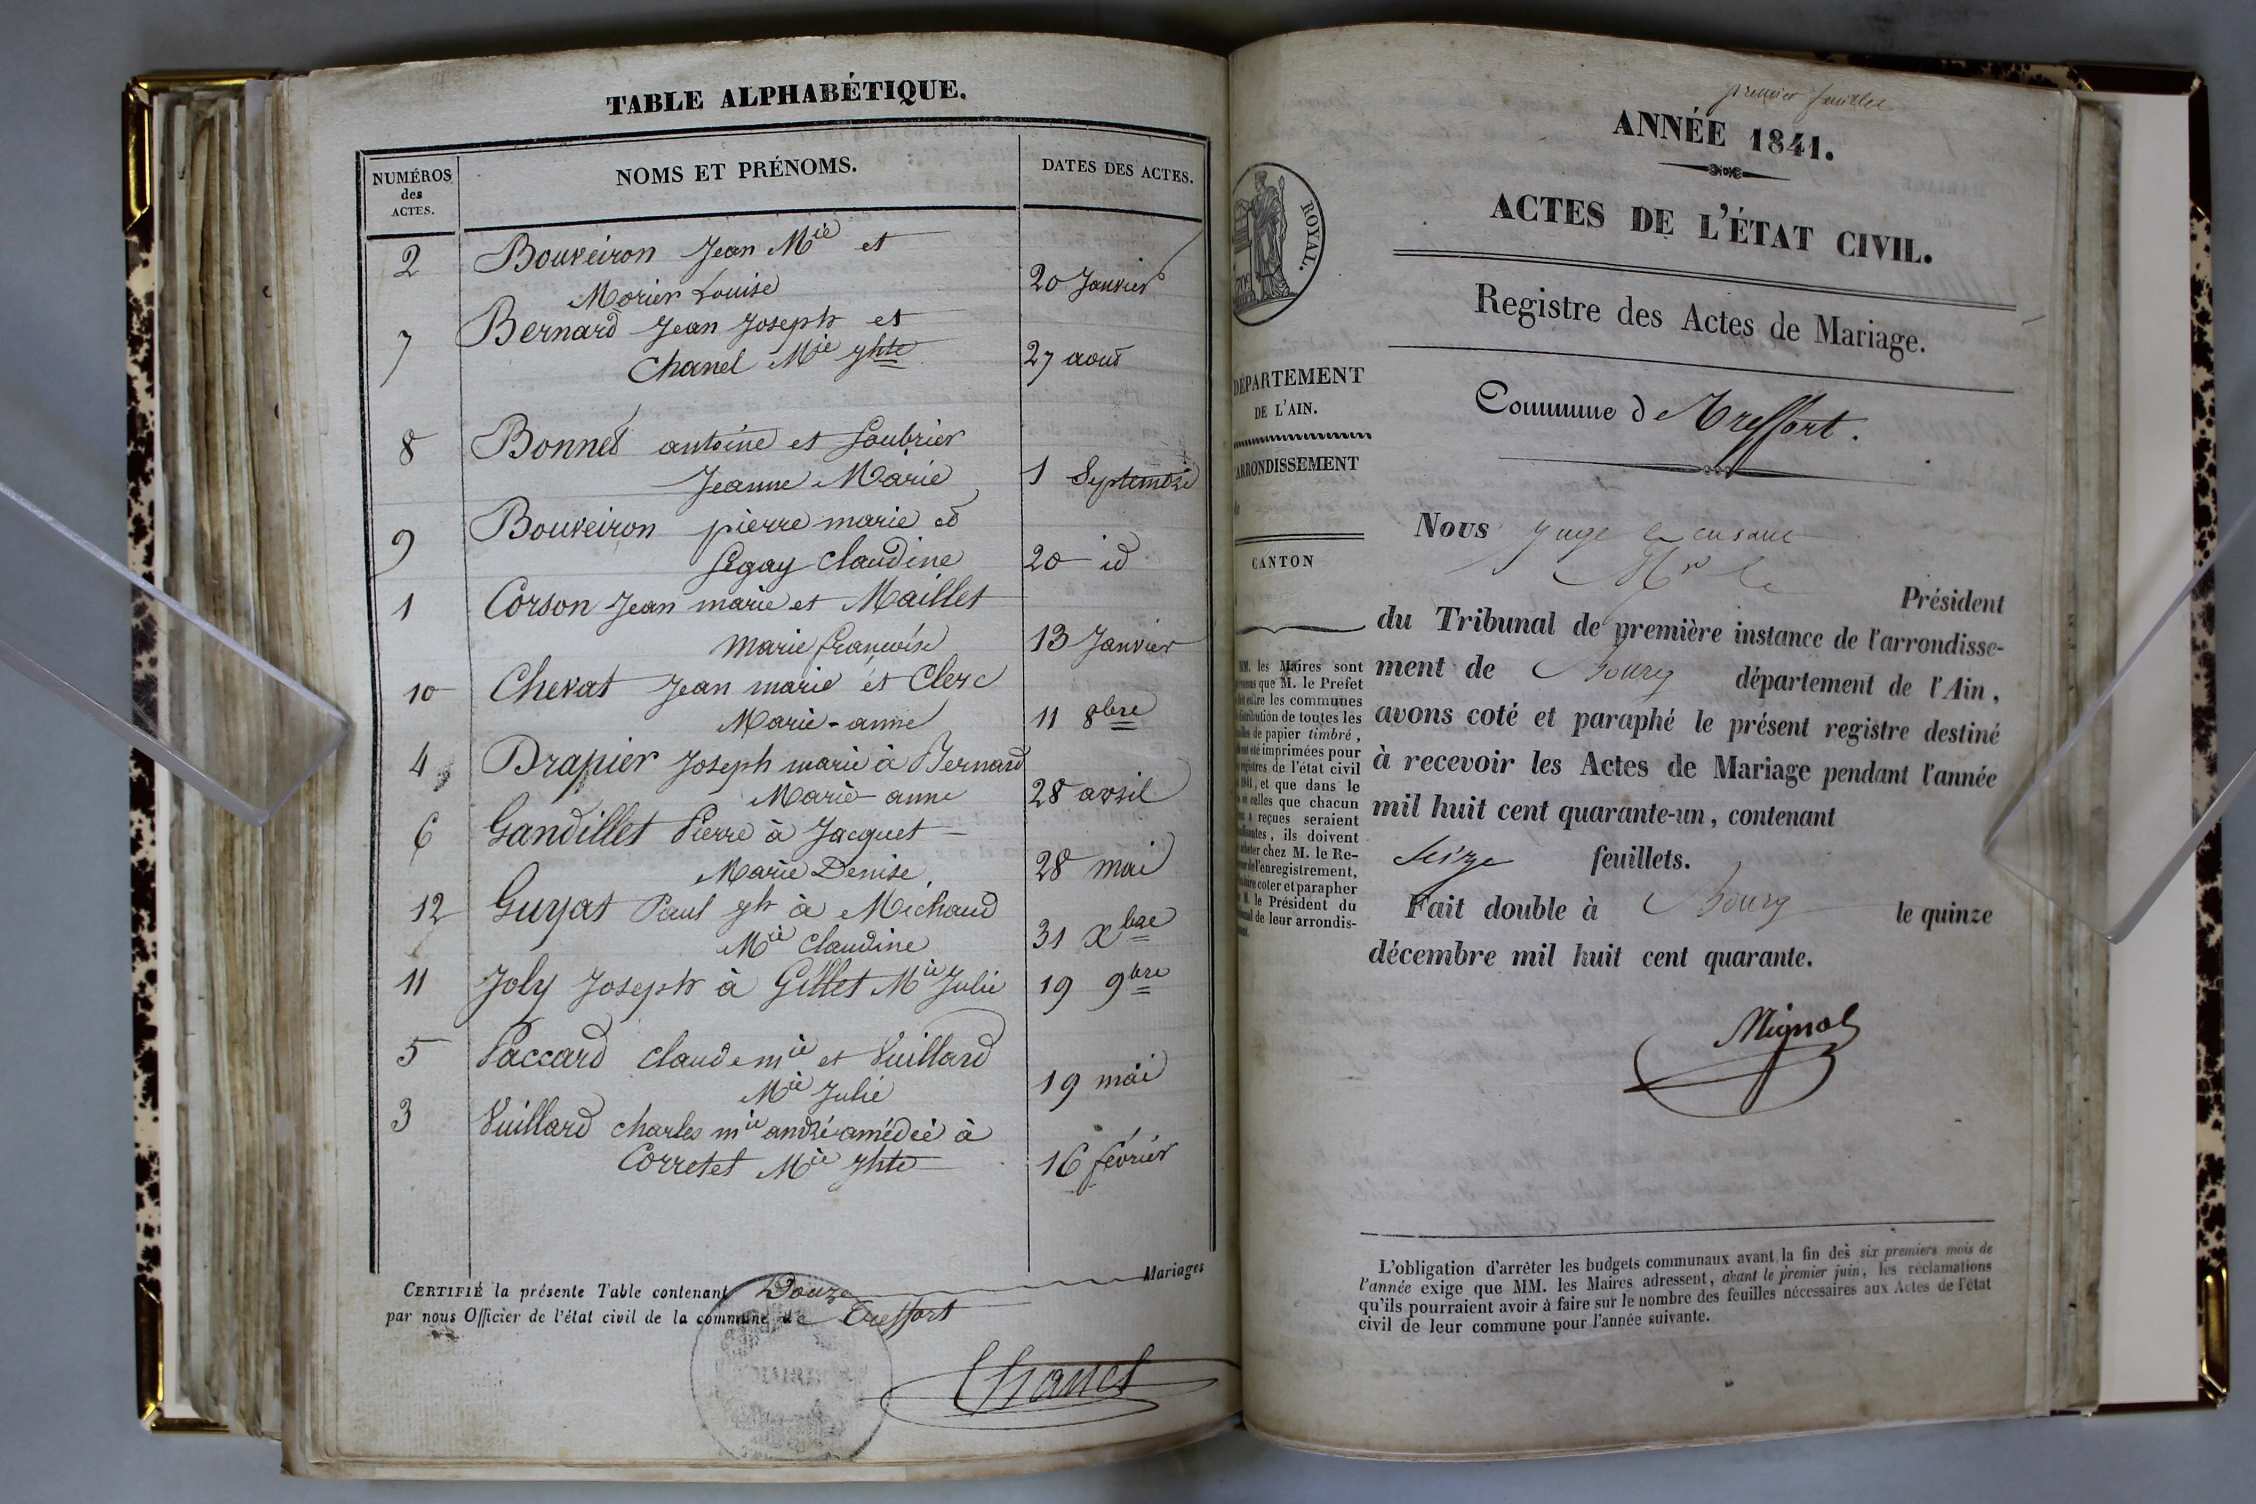 TABLE ALPHABÉTIQUE.
NUMÉROS
des
ACTES.
NOMS ET PRÉNOMS.
DATES DES ACTES.
2 Bouveiron Jean Mie et
Morier Louise 20 Janvier
7 Bernard Jean Joseph et
Chanel Mie yhte 27 aout
8 Bonnet antoine et Loubrier
Jeanne Marie 1 Septembre
9 Bouveiron pierre marie et
Legay Claudine 20 id
1 Corson Jean marie et Maillet
Marie françoise 13 Janvier
10 Chevat Jean marie et Clerc
Marie-anne 11 8bre
4 Drapier Joseph marie à Bernard
Marie-anne 28 avril
6 Gandillet Pierre à Jacquet
Marie Denise 28 mai
12 Guyat Paul yh à Michaud
Mie Claudine 31 Xbre
11 Joly Joseph à Gillet Mie Julie 19 9bre
5 Paccard Claude mie et Vuillard
Mie Julie 19 mai
3 Vuillard charles mie andré amédée à
Corretet Mie yhte 16 février
CERTIFIÉ la présente Table contenant Douze Mariages
par nous Officier de l'état civil de la commune de Treffort
Chanel
premier feuillet
ANNÉE 1841.
ACTES DE L'ÉTAT CIVIL.
ROYAL.
Registre des Actes de Mariage.
DÉPARTEMENT
DE L'AIN.
ARRONDISSEMENT
CANTON
Commune de Treffort.
Nous Juge
Mr le Président
du Tribunal de première instance de l'arrondisse-
ment de Bourg département de l'Ain,
avons coté et paraphé le présent registre destiné
à recevoir les Actes de Mariage pendant l'année
mil huit cent quarante-un, contenant
Seize feuillets.
Fait double à Bourg le quinze
décembre mil huit cent quarante.
Mignot
MM. les Maires sont
que M. le Préfet
entre les communes
distribution de toutes les
de papier timbré,
été imprimées pour
registres de l'état civil
1841, et que dans le
celles que chacun
reçues seraient
ils doivent
acheter chez M. le Re-
de l'enregistrement,
coter et parapher
M. le Président du
de leur arrondis-
L'obligation d'arrêter les budgets communaux avant la fin des six premiers mois de
l'année exige que MM. les Maires adressent, avant le premier juin, les réclamations
qu'ils pourraient avoir à faire sur le nombre des feuilles nécessaires aux Actes de l'état
civil de leur commune pour l'année suivante.